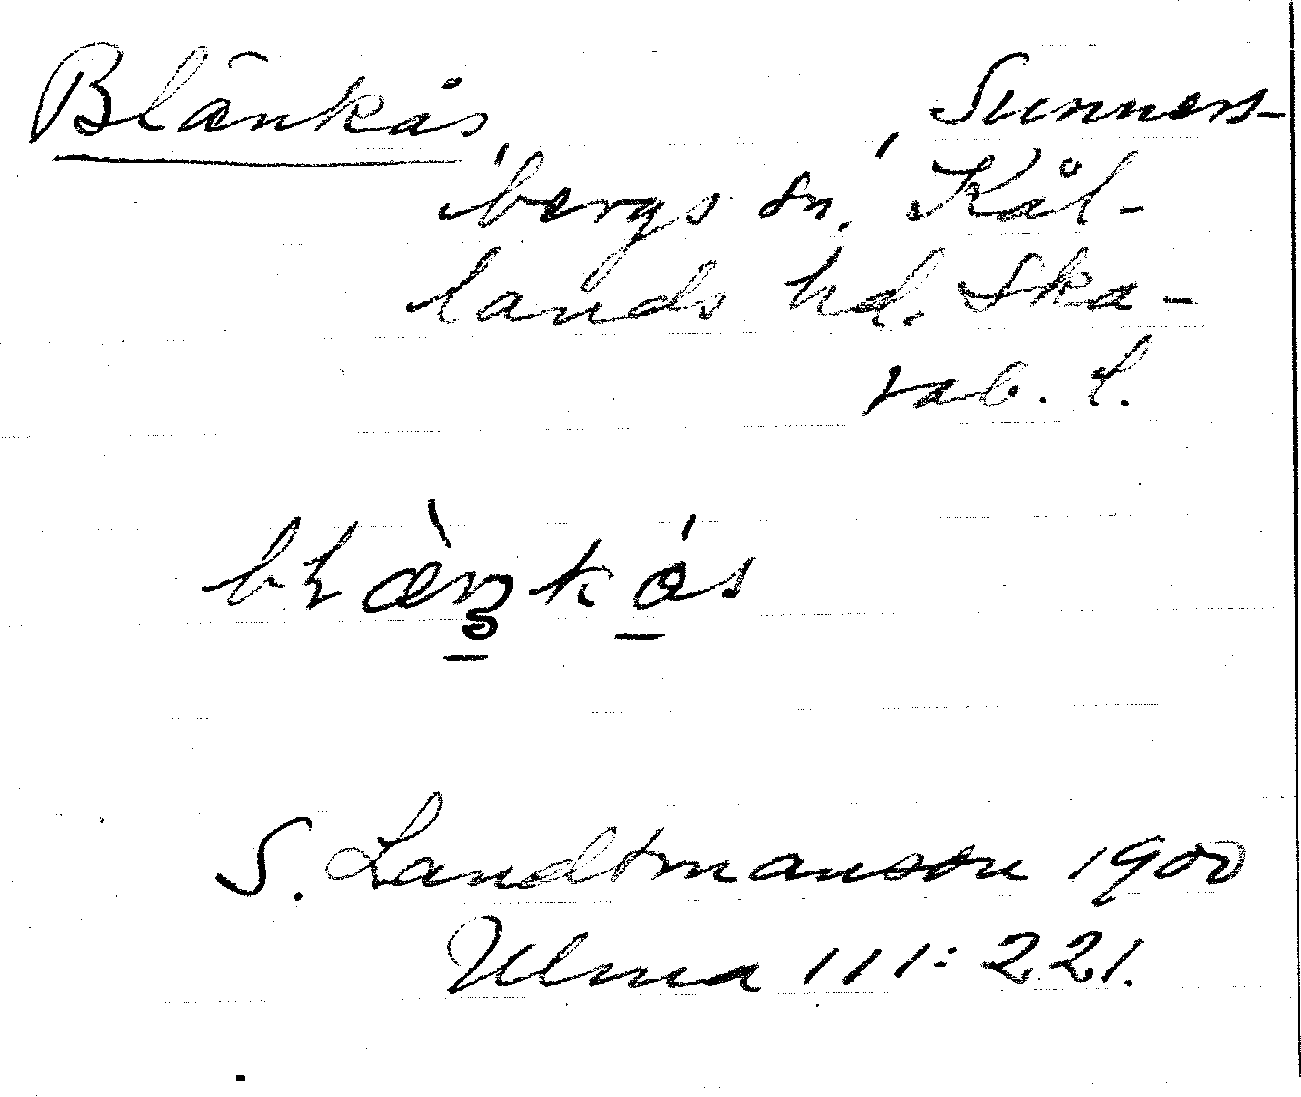 Blänkås, Sunners-
bergs sn, Kål-
lands hd. Ska-
rab. l.
S. Landtmanson 1900
Ulma 111:221.